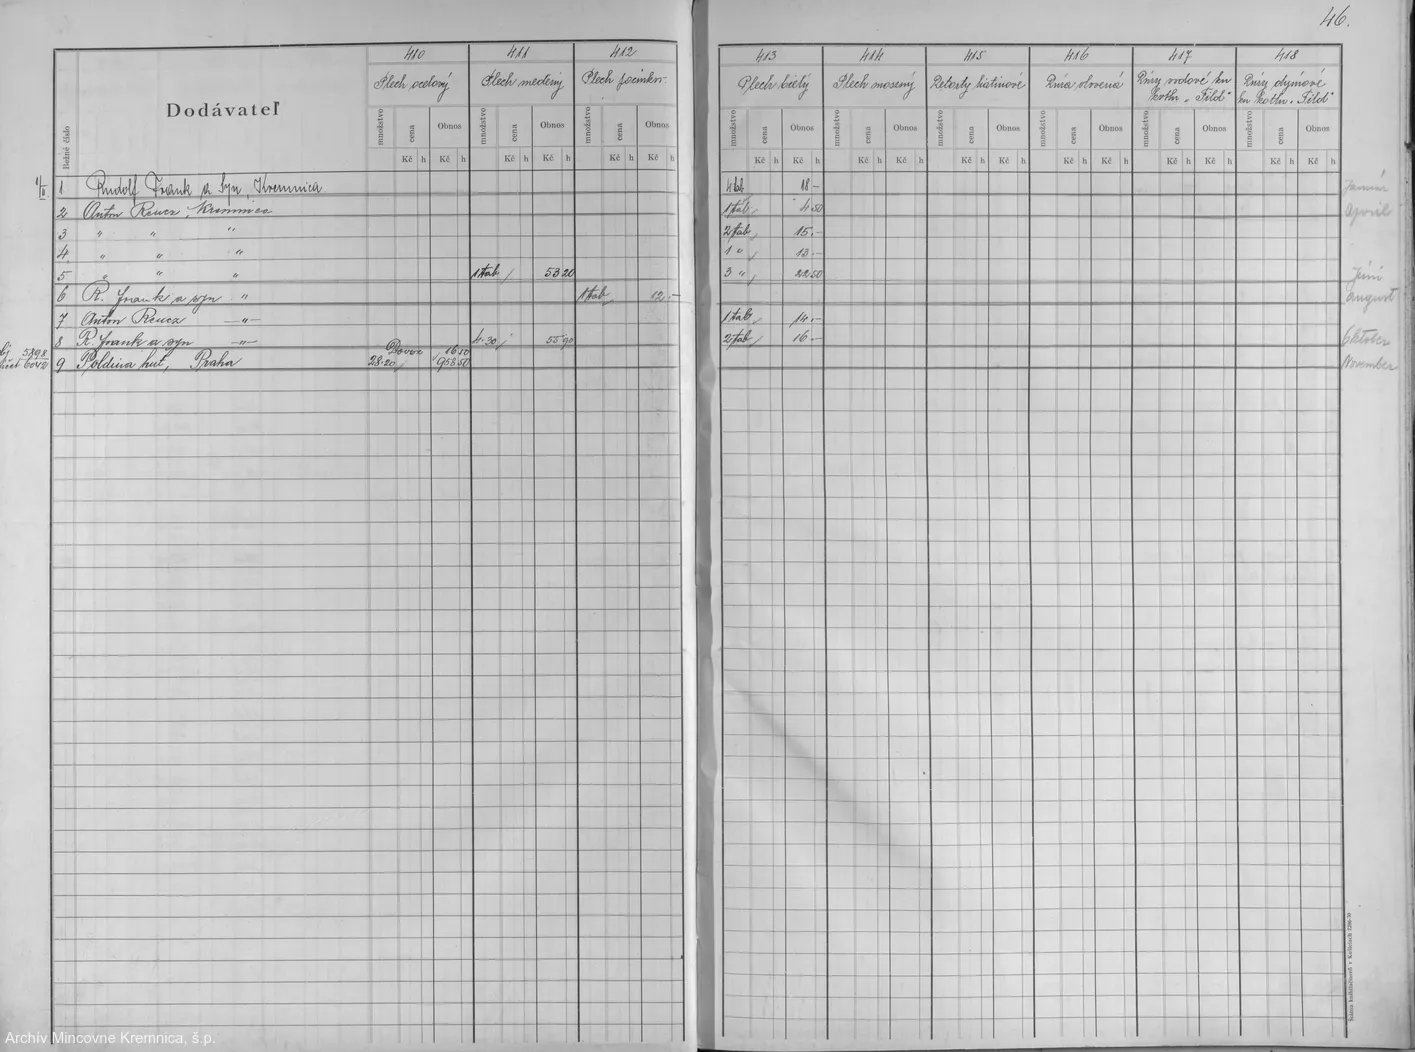 46.
410 411 412 413 414 415 416 417 418
Plech oceľový Plech medený Plech pocinkov. Plech bielý Plech mosený Retorty liatinové Rúra olovená Rúry vodové ku Kothn „Fild“ Rúry dymové ku Kothn „Fild“
Bežné číslo Dodávateľ
množstvo cena Obnos množstvo cena Obnos množstvo cena Obnos množstvo cena Obnos množstvo cena Obnos množstvo cena Obnos množstvo cena Obnos množstvo cena Obnos množstvo cena Obnos
Kč h Kč h Kč h Kč h Kč h Kč h Kč h Kč h Kč h Kč h Kč h Kč h Kč h Kč h Kč h Kč h Kč h Kč h
1 Rudolf Frank a Syn, Kremnica 18 — Január
2 Anton Reucz, Kremnica 1 tab 4 50 April
3 „ „ „ 2 tab 15 —
4 „ „ „ 1 „ 13 —
5 „ „ „ 1 tab 53 20 3 „ 22 50 Júni
6 R. Frank a syn „ 1 tab 12 — august
7 Anton Reucz —„— 1 tab 14 —
8 R. Frank a syn —„— 4·30 55 90 2 tab 16 — Október
5898 Dovoz 16 10
6042 9 Poldina huť, Praha 28·20 958 50 November
Archív Mincovne Kremnica, š.p.